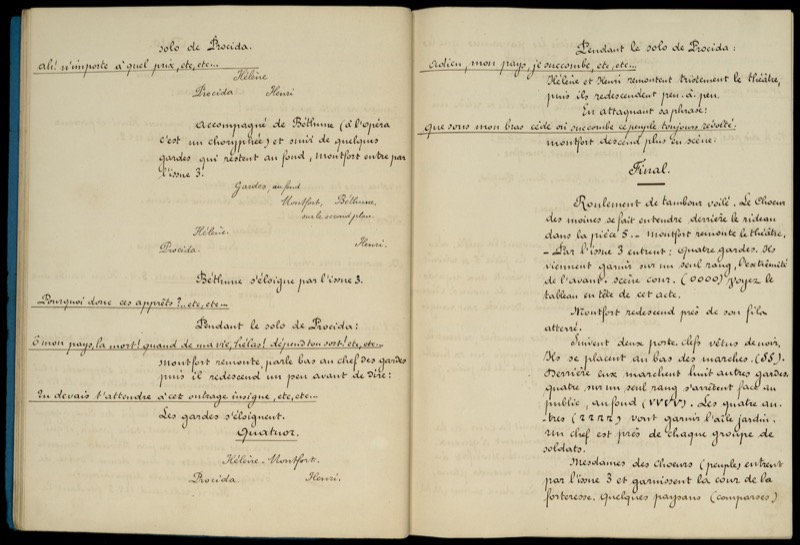 solo de Procida.
Ah! n'importe à quel prix, etc, etc...
Hélène
Procida Henri
Accompagné de Béthune (à l'opéra
c'est un choryphée) et suivi de quelques
gardes qui restent au fond, Montfort entre par
l'issue 3.
Gardes, au fond
Montfort, Béthune,
sur le second plan.
Hélène.
Procida. Henri.
Béthune s'éloigne par l'issue 3.
Pourquoi donc ces apprêts?.. etc, etc...
Pendant le solo de Procida:
O mon pays, la mort! quand de ma vie, hélas! dépend ton sort! etc, etc...
Montfort remonte, parle bas au chef des gardes
puis il redescend un peu avant de dire:
Tu devais t'attendre à cet outrage insigne, etc, etc...
Les gardes s'éloignent.
Quatuor.
Hélène - Montfort.
Procida Henri.
Pendant le solo de Procida:
Adieu, mon pays, je succombe, etc, etc...
Hélène et Henri remontent tristement le théâtre,
puis ils redescendent peu à peu.
En attaquant sa phrase:
Que sous mon bras cède où succombe ce peuple toujours révolté.
Montfort descend plus en scène.
Final.
Roulement de tambour voilé. Le Choeur
des moines se fait entendre derrière le rideau
dans la pièce 5. - Montfort remonte le théâtre.
- Par l'issue 3 entrent: Quatre gardes. Ils
viennent garnir sur un seul rang, l'extrêmité
de l'avant-scène cour. (0000) Voyez le
tableau en tête de cet acte.
Montfort redescend près de son fils
atterré.
Suivent deux porte-clefs vêtus de noir.
Ils se placent au bas des marches. (§§).
Derrière eux marchent huit autres gardes.
quatre sur un seul rang s'arrêtent face au
public, au fond (VVVV). Les quatre au-
tres (ZZZZ) vont garnir l'aile jardin.
Un chef est près de chaque groupe de
soldats.
Mesdames des Choeurs (peuple) entrent
par l'issue 3 et garnissent la cour de la
forteresse. Quelques paysans (comparses)